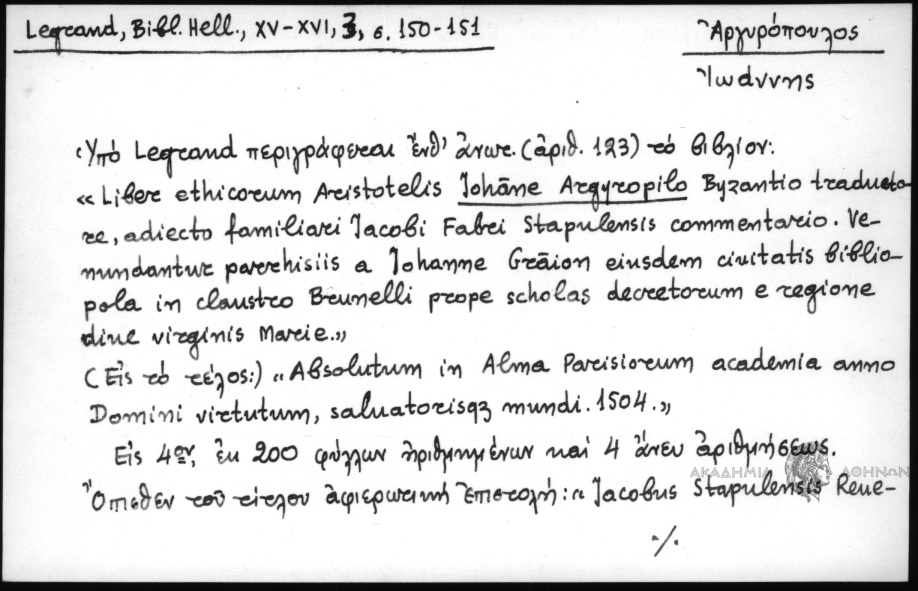 Legrand, Bibl. Hell., XV-XVI, 3, σ. 150-151
Ἀργυρόπουλος
Ἰωάννης
Ὑπό Legrand περιγράφεται ἔνθ' ἄνωτ. (ἀριθ. 123) τό βιβλίον:
«Liber ethicorum Aristotelis Johāne Argyropilo Byzantio traducto-
re, adiecto familiari Jacobi Fabri Stapulensis commentario. Ve-
nundantur parrhisiis a Johanne Grāion eiusdem ciuitatis biblio-
pola in claustro Brunelli prope scholas decretorum e regione
diue virginis Marie.»
(Εἰς τό τέλος:) «Absolutum in Alma Parisiorum academia anno
Domini virtutum, saluatorisqꝫ mundi. 1504.»
Εἰς 4ον, ἐκ 200 φύλλων ἠριθμημένων καί 4 ἄνευ ἀριθμήσεως.
Ὄπισθεν τοῦ τίτλου ἀφιερωτική ἐπιστολή: «Jacobus Stapulensis Reue-
ΑΚΑΔΗΜΙΑ ΑΘΗΝΩΝ
./.